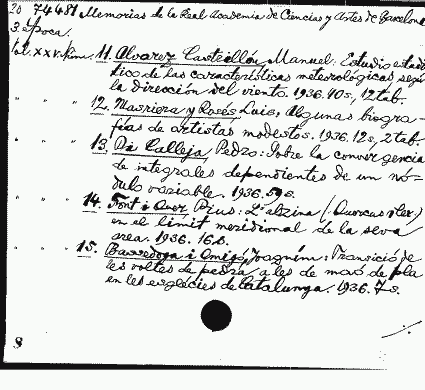 20 74481 Memorias de la Real Academia de Ciencias y Artes de Barcelona
3. época.
tol. XXV. Núm. 11. Alvarez Castrillón, Manuel. Estudio estadí
tico de las características meteorológicas según
la dirección del viento. 1936. 40 s., 12 tab.
" " " 12. Masriera y Rosés, Luis, Algunas biogra-
fías de artistas modestos. 1936. 12 s, 2 tab.
" " " 13. Pi Calleja, Pedro: Sobre la convergencia
de integrales dependientes de un mó-
dulo variable. 1936. 59 s.
" " " 14. Font i Quer, Pius: L'alzina (Quercus ilex)
en el límit meridional de la seva
area. 1936. 16 s.
" " " 15. Bassegoda i Amigó, Joaquim: Transició de
les voltes de pedra a les de maó de pla
en les esglécies de Catalunya. 1936. 7 s.
8